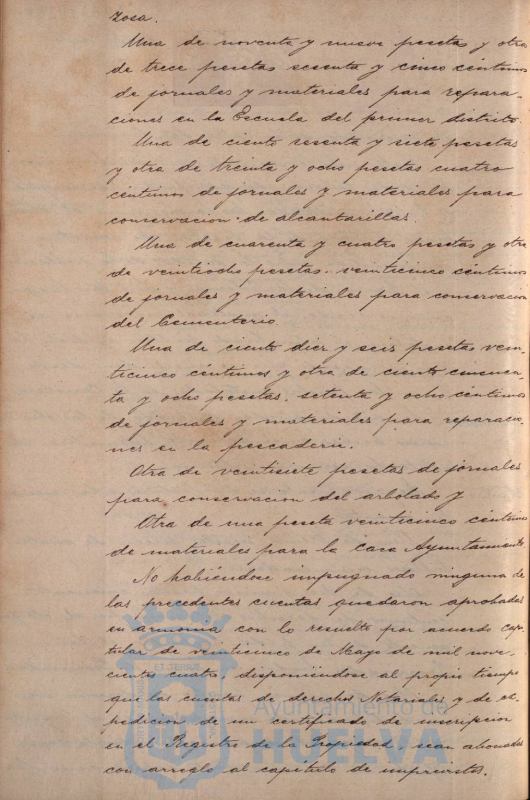 zosa.
Una de noventa y nueve pesetas y otra
de trece pesetas sesenta y cinco céntimos
de jornales y materiales para repara-
ciones en la Escuela del primer distrito.
Una de ciento sesenta y siete pesetas
y otra de treinta y ocho pesetas cuatro
céntimos de jornales y materiales para
conservacion de alcantarillas.
Una de cuarenta y cuatro pesetas y otra
de veintiocho pesetas veinticinco céntimos
de jornales y materiales para conservacion
del Cementerio.
Una de ciento diez y seis pesetas vein-
ticinco céntimos y otra de ciento cincuen-
ta y ocho pesetas setenta y ocho céntimos
de jornales y materiales para reparacio-
nes en la pescaderia.
Otra de veintisiete pesetas de jornales
para conservacion del arbolado y
Otra de una peseta veinticinco céntimos
de materiales para la Casa Ayuntamiento
No habiéndose impugnado ninguna de
las precedentes cuentas quedaron aprobadas
en armonia con lo resuelto por acuerdo capi-
tular de veinticinco de Mayo de mil nove-
cientos cuatro, disponiéndose al propio tiempo
que las cuentas de derechos Notariales y de ex-
pedicion de un certificado de inscripcion
en el Registro de la Propiedad, sean abonadas
con arreglo al capítulo de imprevistos.
Ayuntamiento de
HUELVA